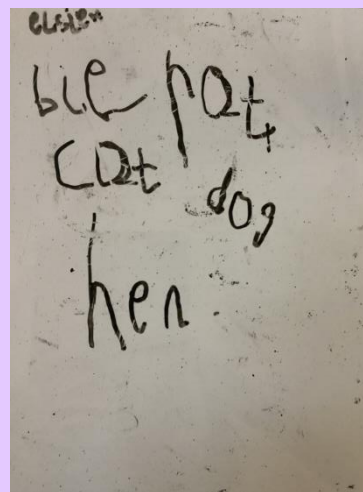 ble pat
cat dog
hen